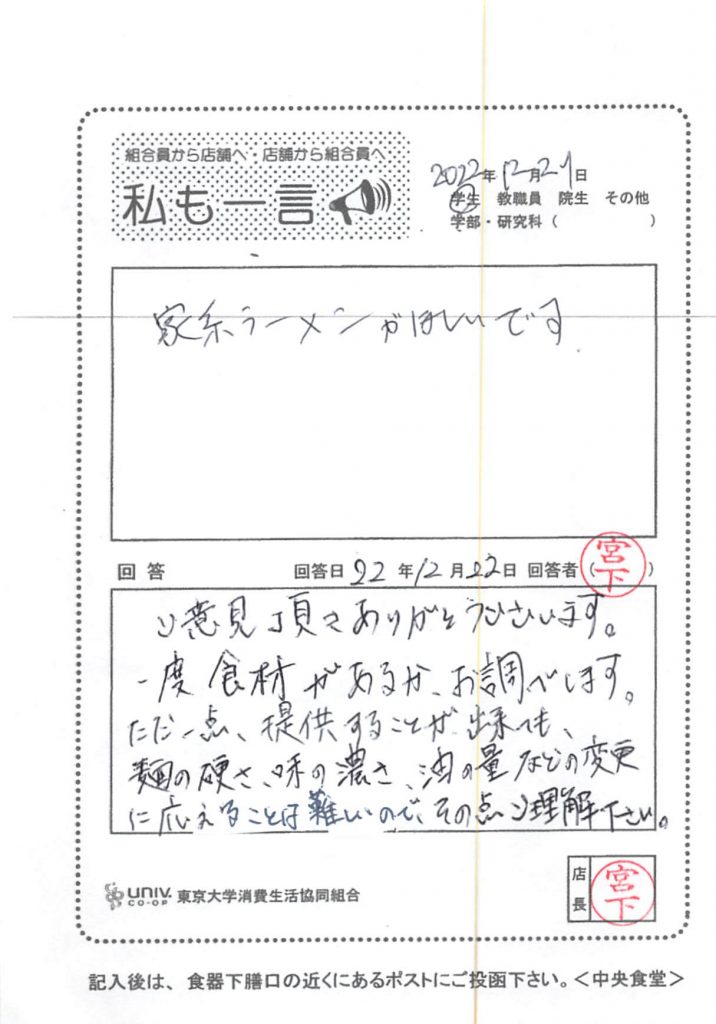 組合員から店舗へ・店舗から組合員へ
私も一言
2022年12月21日
学生 教職員 院生 その他
学部・研究科（ ）
家系ラーメンがほしいです
回答 回答日22年12月22日 回答者（宮下）
ご意見頂きありがとうございます。
一度食材があるか、お調べします。
ただ一点、提供することが出来ても、
麺の硬さ、味の濃さ、油の量などの変更
に応えることは難しいので、その点ご理解下さい。
UNIV. CO-OP 東京大学消費生活協同組合
店長 宮下
記入後は、食器下膳口の近くにあるポストにご投函下さい。＜中央食堂＞